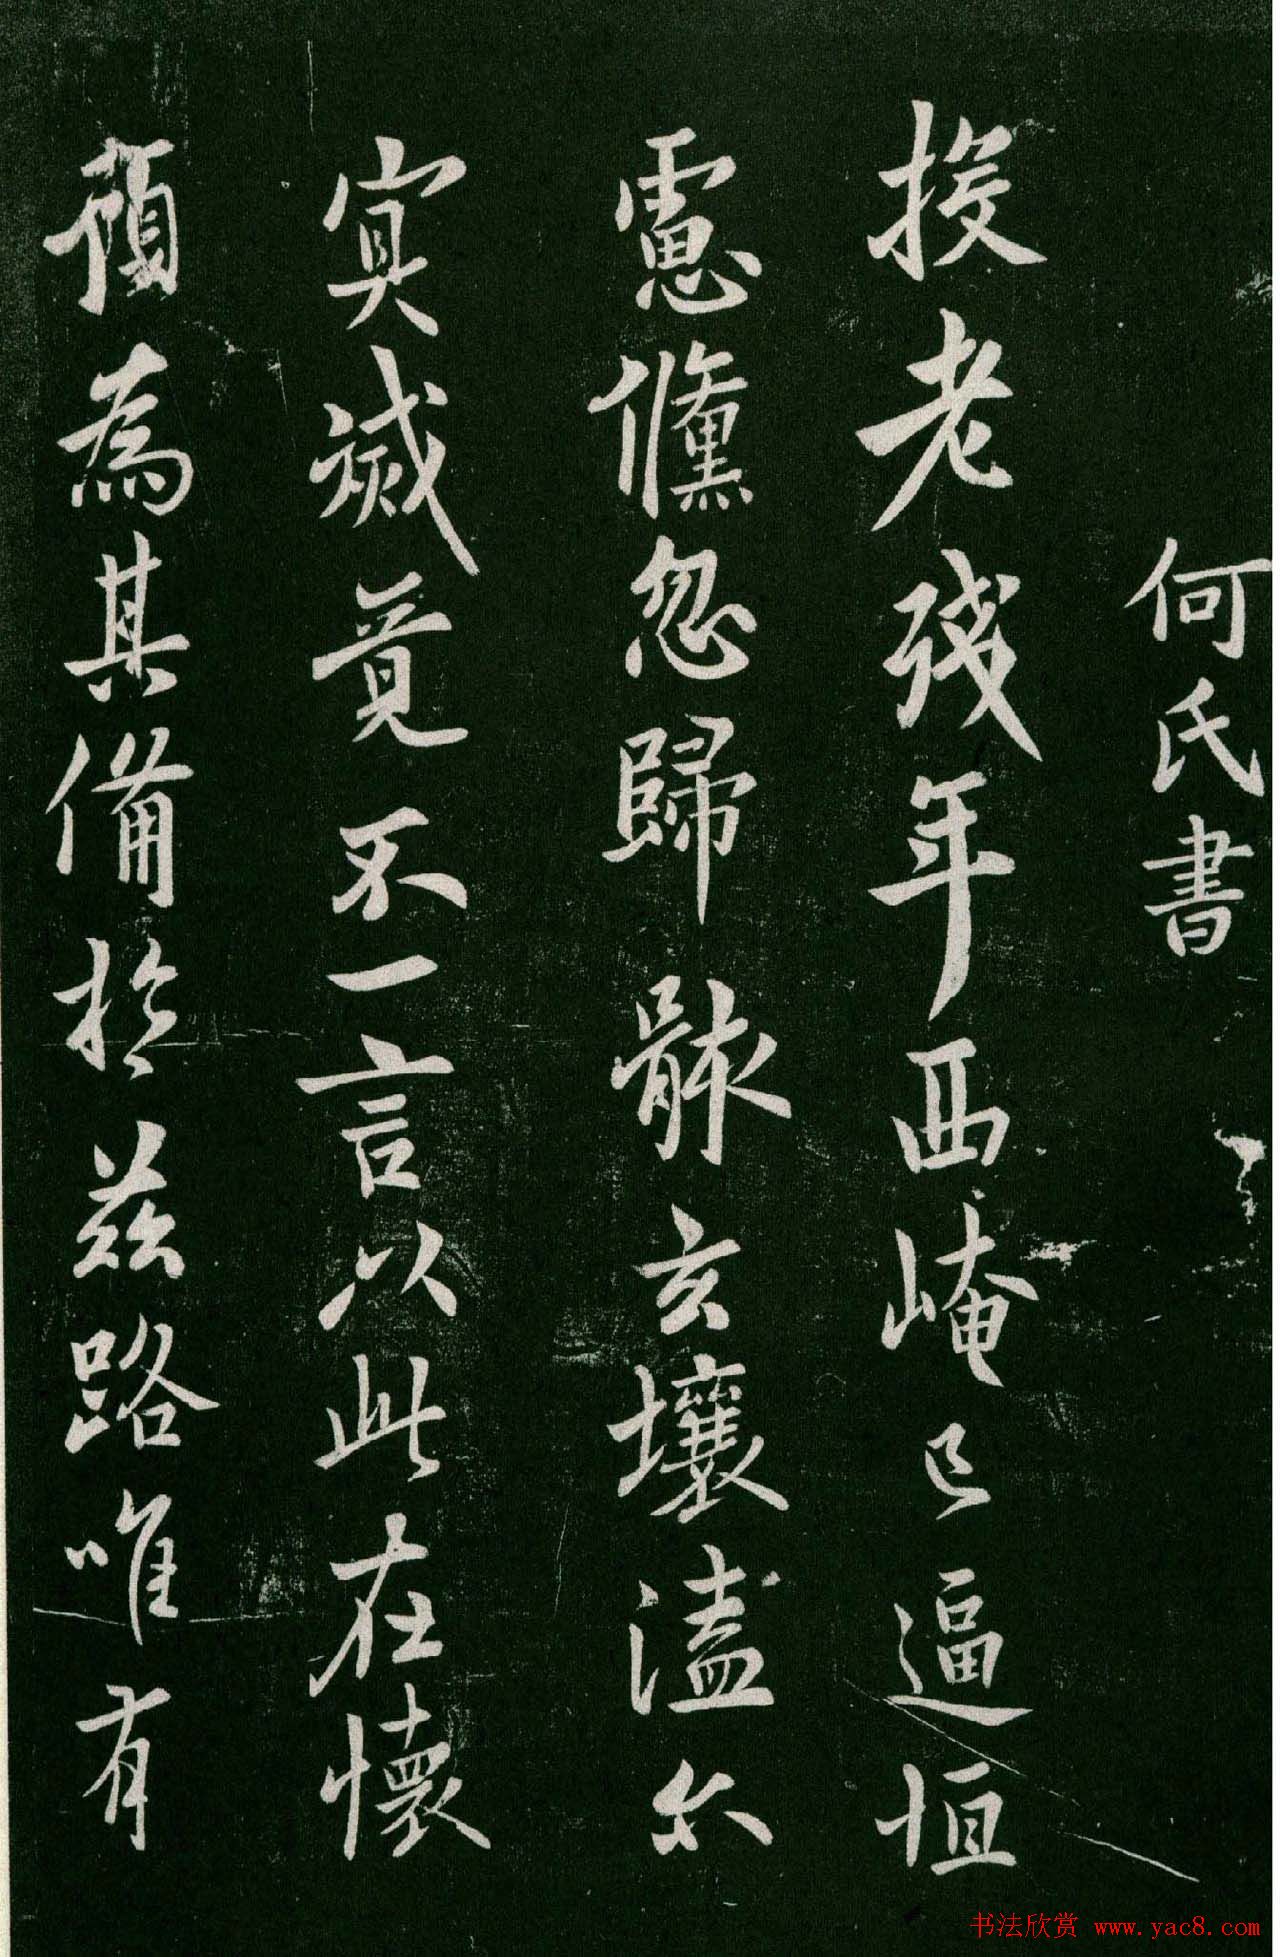 何氏書
投老残年西崦已逼恒
慮儵忽歸骸玄壤溘尒
冥滅竟不一言以此在懷
預為其備於兹路唯有
书法欣赏 www.yac8.com